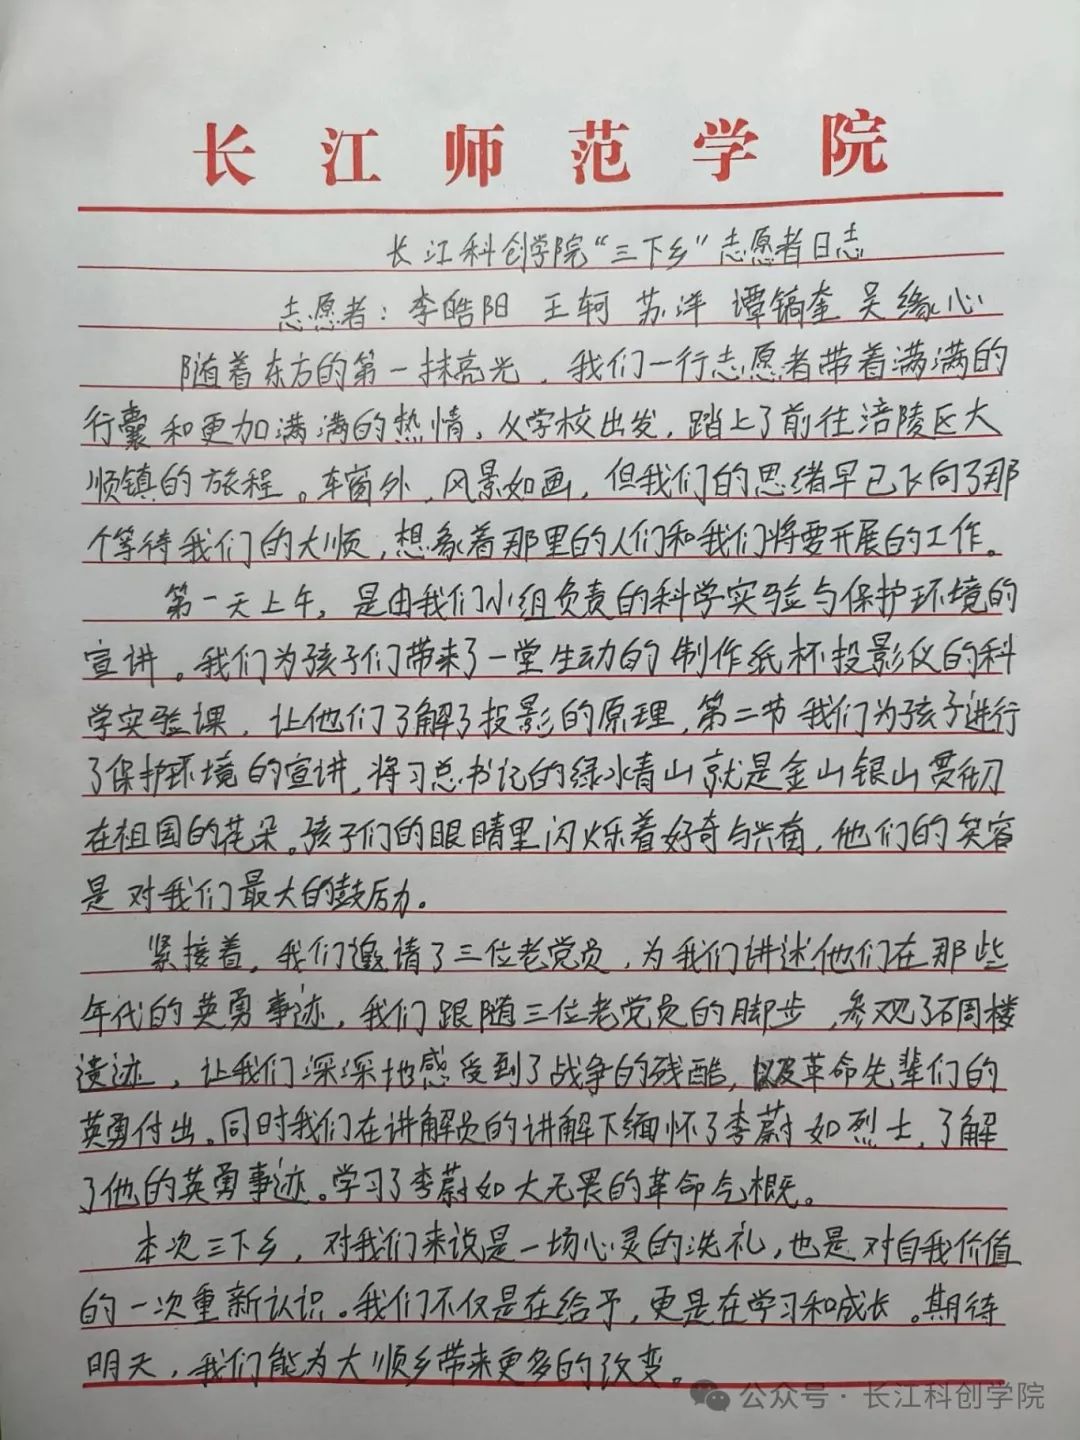 长江师范学院
长江科创学院“三下乡”志愿者日志
志愿者：李皓阳 王轲 苏洋 谭镐奎 吴缘心
随着东方的第一抹亮光，我们一行志愿者带着满满的
行囊和更加满满的热情，从学校出发，踏上了前往涪陵区大
顺镇的旅程。车窗外，风景如画，但我们的思绪早已飞向了那
个等待我们的大顺，想象着那里的人们和我们将要开展的工作。
第一天上午，是由我们小组负责的科学实验与保护环境的
宣讲。我们为孩子们带来了一堂生动的制作纸杯投影仪的科
学实验课，让他们了解了投影的原理，第二节我们为孩子进行
了保护环境的宣讲，将习总书记的绿水青山就是金山银山贯彻
在祖国的花朵。孩子们的眼睛里闪烁着好奇与兴奋，他们的笑容
是对我们最大的鼓励。
紧接着，我们邀请了三位老党员，为我们讲述他们在那些
年代的英勇事迹，我们跟随三位老党员的脚步，参观了石周楼
遗迹，让我们深深地感受到了战争的残酷，以及革命先辈们的
英勇付出。同时我们在讲解员的讲解下缅怀了李蔚如烈士，了解
了他的英勇事迹。学习了李蔚如大无畏的革命气概。
本次三下乡，对我们来说是一场心灵的洗礼，也是对自我价值
的一次重新认识。我们不仅是在给予，更是在学习和成长。期待
明天，我们能为大顺乡带来更多的改变。
公众号·长江科创学院